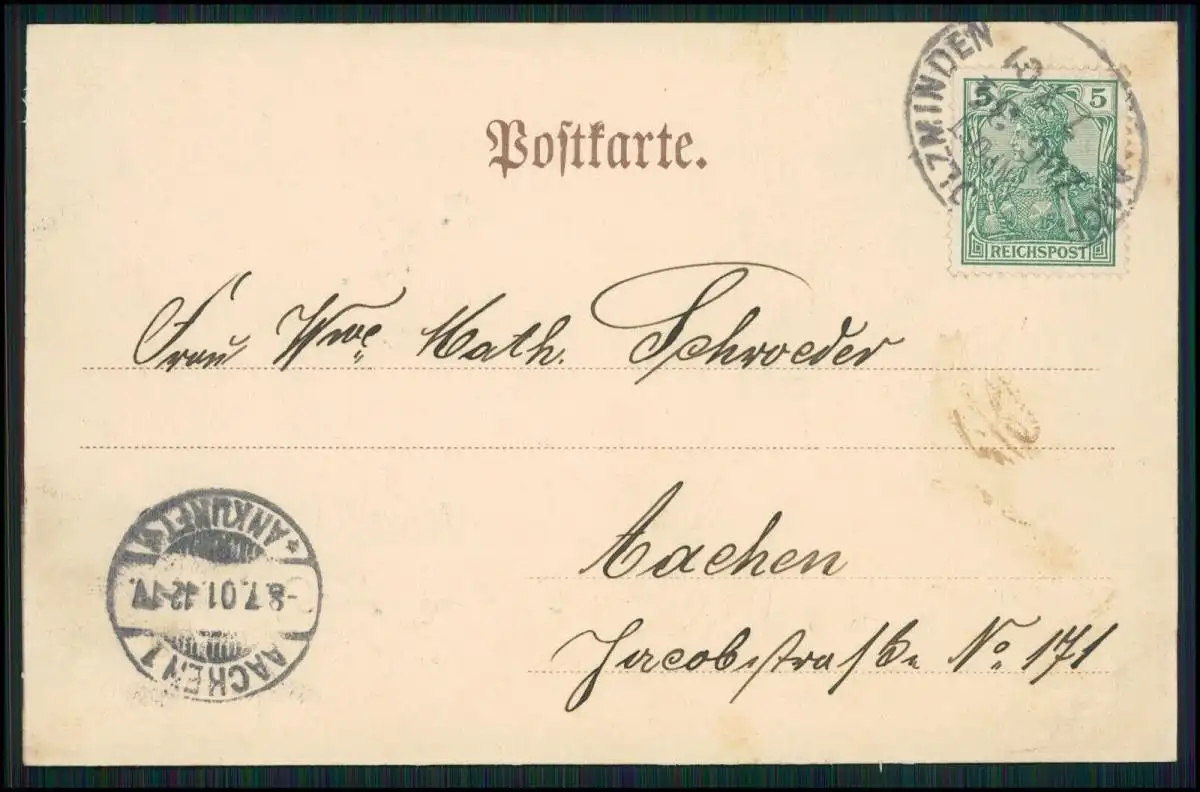 Postkarte.
5 5
REICHSPOST
Frau Wwe. Math. Schroeder
Aachen
Jacobstraße No. 171
*ANKUNFT*
-8.7.01.12-1V.
AACHEN 1